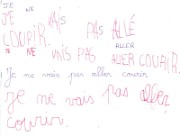 JE NE
JE VAIS PAS ALLÉ
COURIR. ALLER
JE NE VAIS PAS ALLER COURIR.
Je ne vais pas aller courir
je ne vais pas aller
courir.